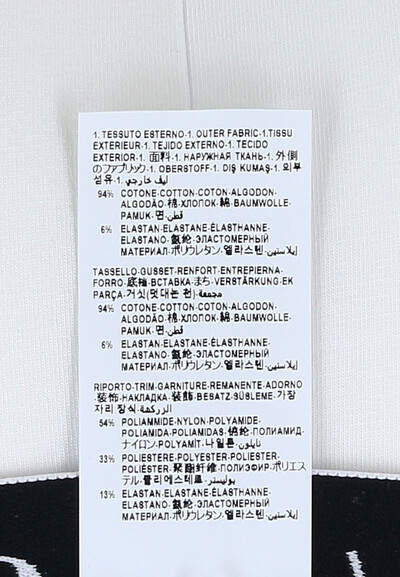 1. TESSUTO ESTERNO·1. OUTER FABRIC·1.TISSU
EXTERIEUR·1. TEJIDO EXTERNO·1. TECIDO
EXTERIOR·1. 面料·1. НАРУЖНАЯ ТКАНЬ·1. 外側
のファブリック·1. OBERSTOFF·1. DIŞ KUMAŞ·1. 외부
섬유·1. ليف خارجي
94% COTONE·COTTON·COTON·ALGODON·
ALGODÃO·棉·ХЛОПОК·綿·BAUMWOLLE·
PAMUK·면·قطن
6% ELASTAN·ELASTANE·ÉLASTHANNE·
ELASTANO·氨纶·ЭЛАСТОМЕРНЫЙ
МАТЕРИАЛ·ポリウレタン·엘라스텐·إيلاستين
TASSELLO·GUSSET·RENFORT·ENTREPIERNA·
FORRO·底裆·ВСТАВКА·まち·VERSTÄRKUNG·EK
PARÇA·거싯(덧대는 천)·مجمعة
94% COTONE·COTTON·COTON·ALGODON·
ALGODÃO·棉·ХЛОПОК·綿·BAUMWOLLE·
PAMUK·면·قطن
6% ELASTAN·ELASTANE·ÉLASTHANNE·
ELASTANO·氨纶·ЭЛАСТОМЕРНЫЙ
МАТЕРИАЛ·ポリウレタン·엘라스텐·إيلاستين
RIPORTO·TRIM·GARNITURE·REMANENTE·ADORNO
·装饰·НАКЛАДКА·装飾·BESATZ·SÜSLEME·가장
자리 장식·الزركشة
54% POLIAMMIDE·NYLON·POLYAMIDE·
POLIAMIDA·POLIAMIDAS·锦纶·ПОЛИАМИД·
ナイロン·POLYAMİT·나일론·نايلون
33% POLIESTERE·POLYESTER·POLYESTER·
POLIÉSTER·聚酯纤维·ПОЛИЭФИР·ポリエス
テル·폴리에스테르·بوليستر
13% ELASTAN·ELASTANE·ÉLASTHANNE·
ELASTANO·氨纶·ЭЛАСТОМЕРНЫЙ
МАТЕРИАЛ·ポリウレタン·엘라스텐·إيلاستين